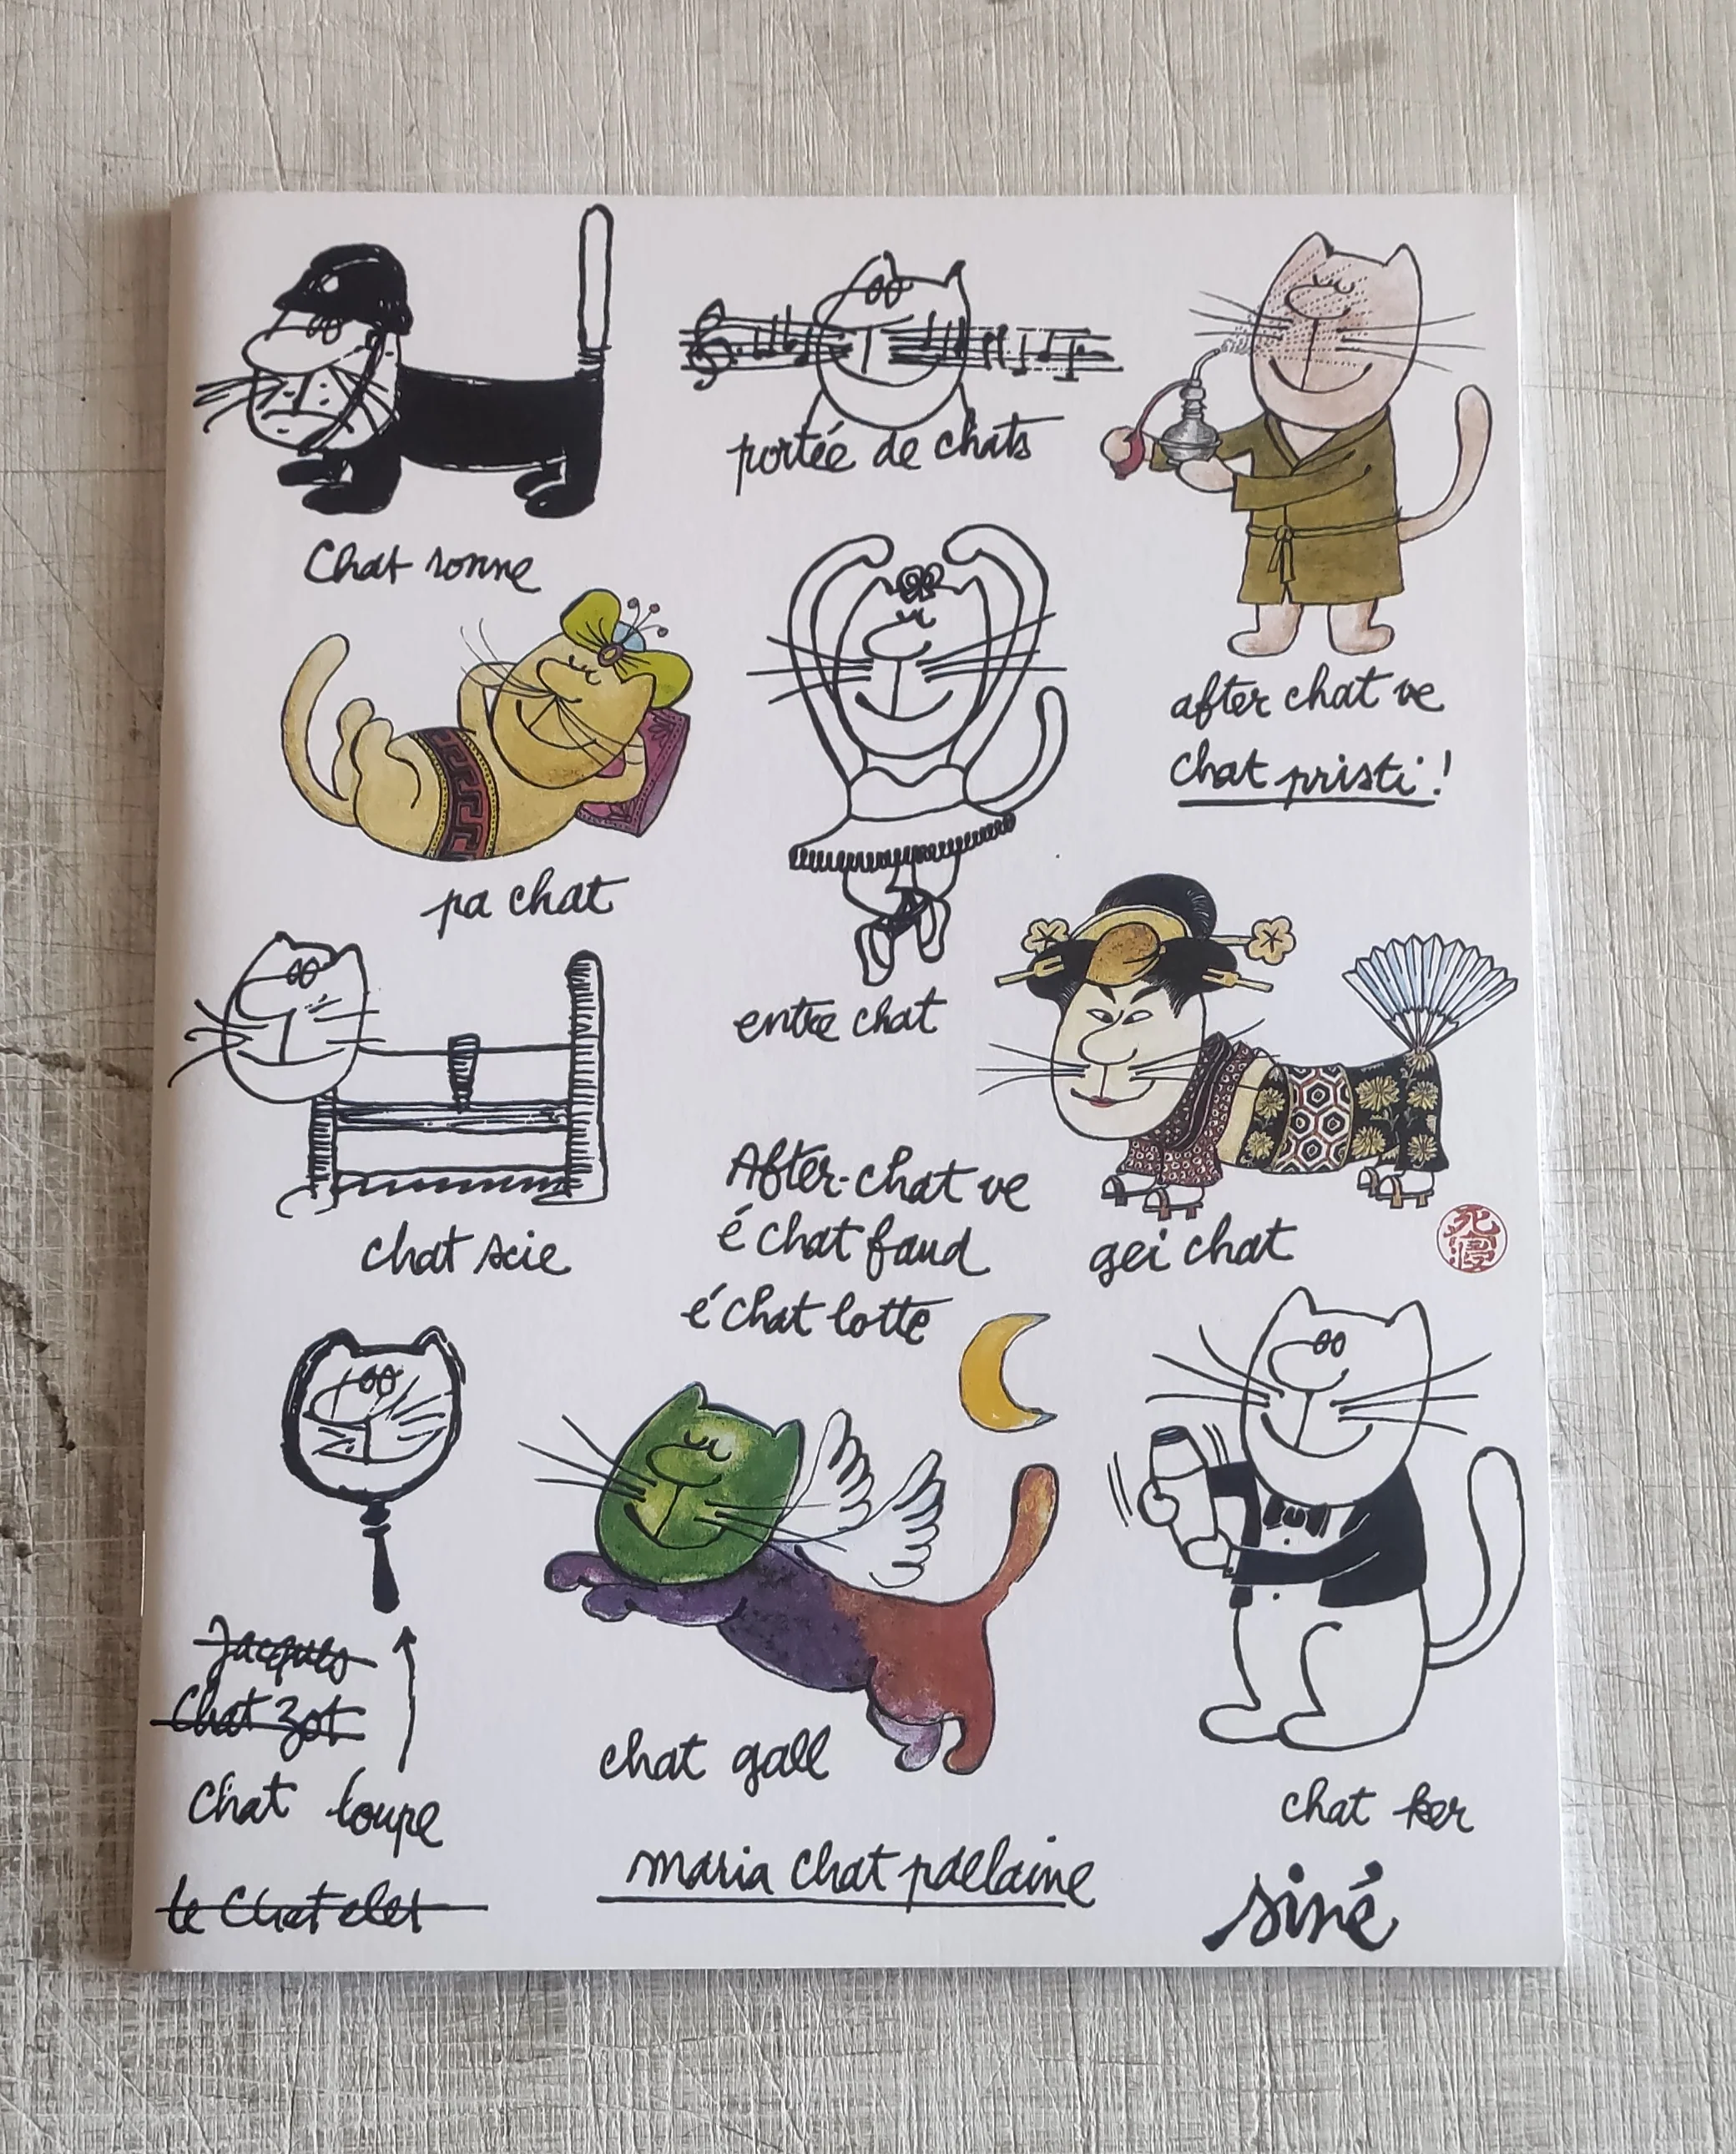 chat sonne
portée de chats
after chat ve
chat pristi !
pa chat
entre chat
chat scie
After-chat ve
é chat faud
é chat lotte
gei chat
Jacques
Chat zot
chat loupe
le Chatelet
chat gall
maria chat pdelaine
chat ker
siné